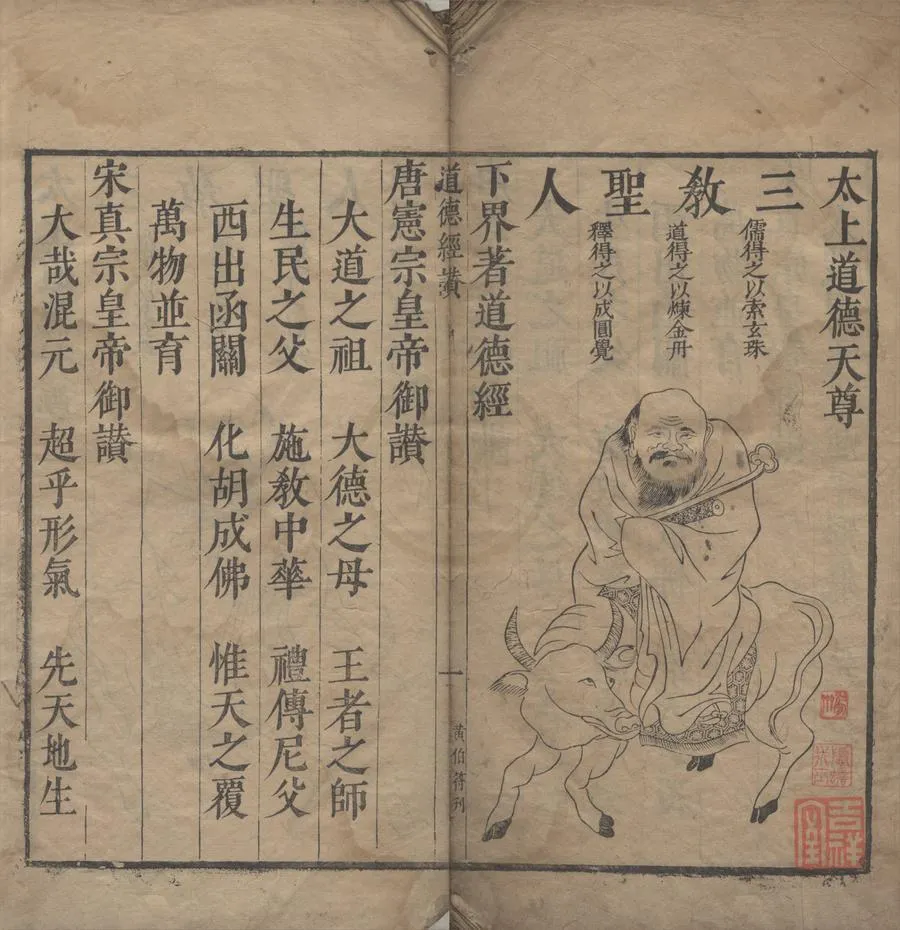 太上道德天尊
三教聖人
儒得之以索玄珠
道得之以煉金丹
釋得之以成圓覺
下界著道德經
道德經讚
一
黃伯符刊
唐憲宗皇帝御讚
大道之祖　大德之母　王者之師
生民之父　施教中華　禮傳尼父
西出函關　化胡成佛　惟天之覆
萬物並育
宋真宗皇帝御讚
大哉混元　超乎形氣　先天地生